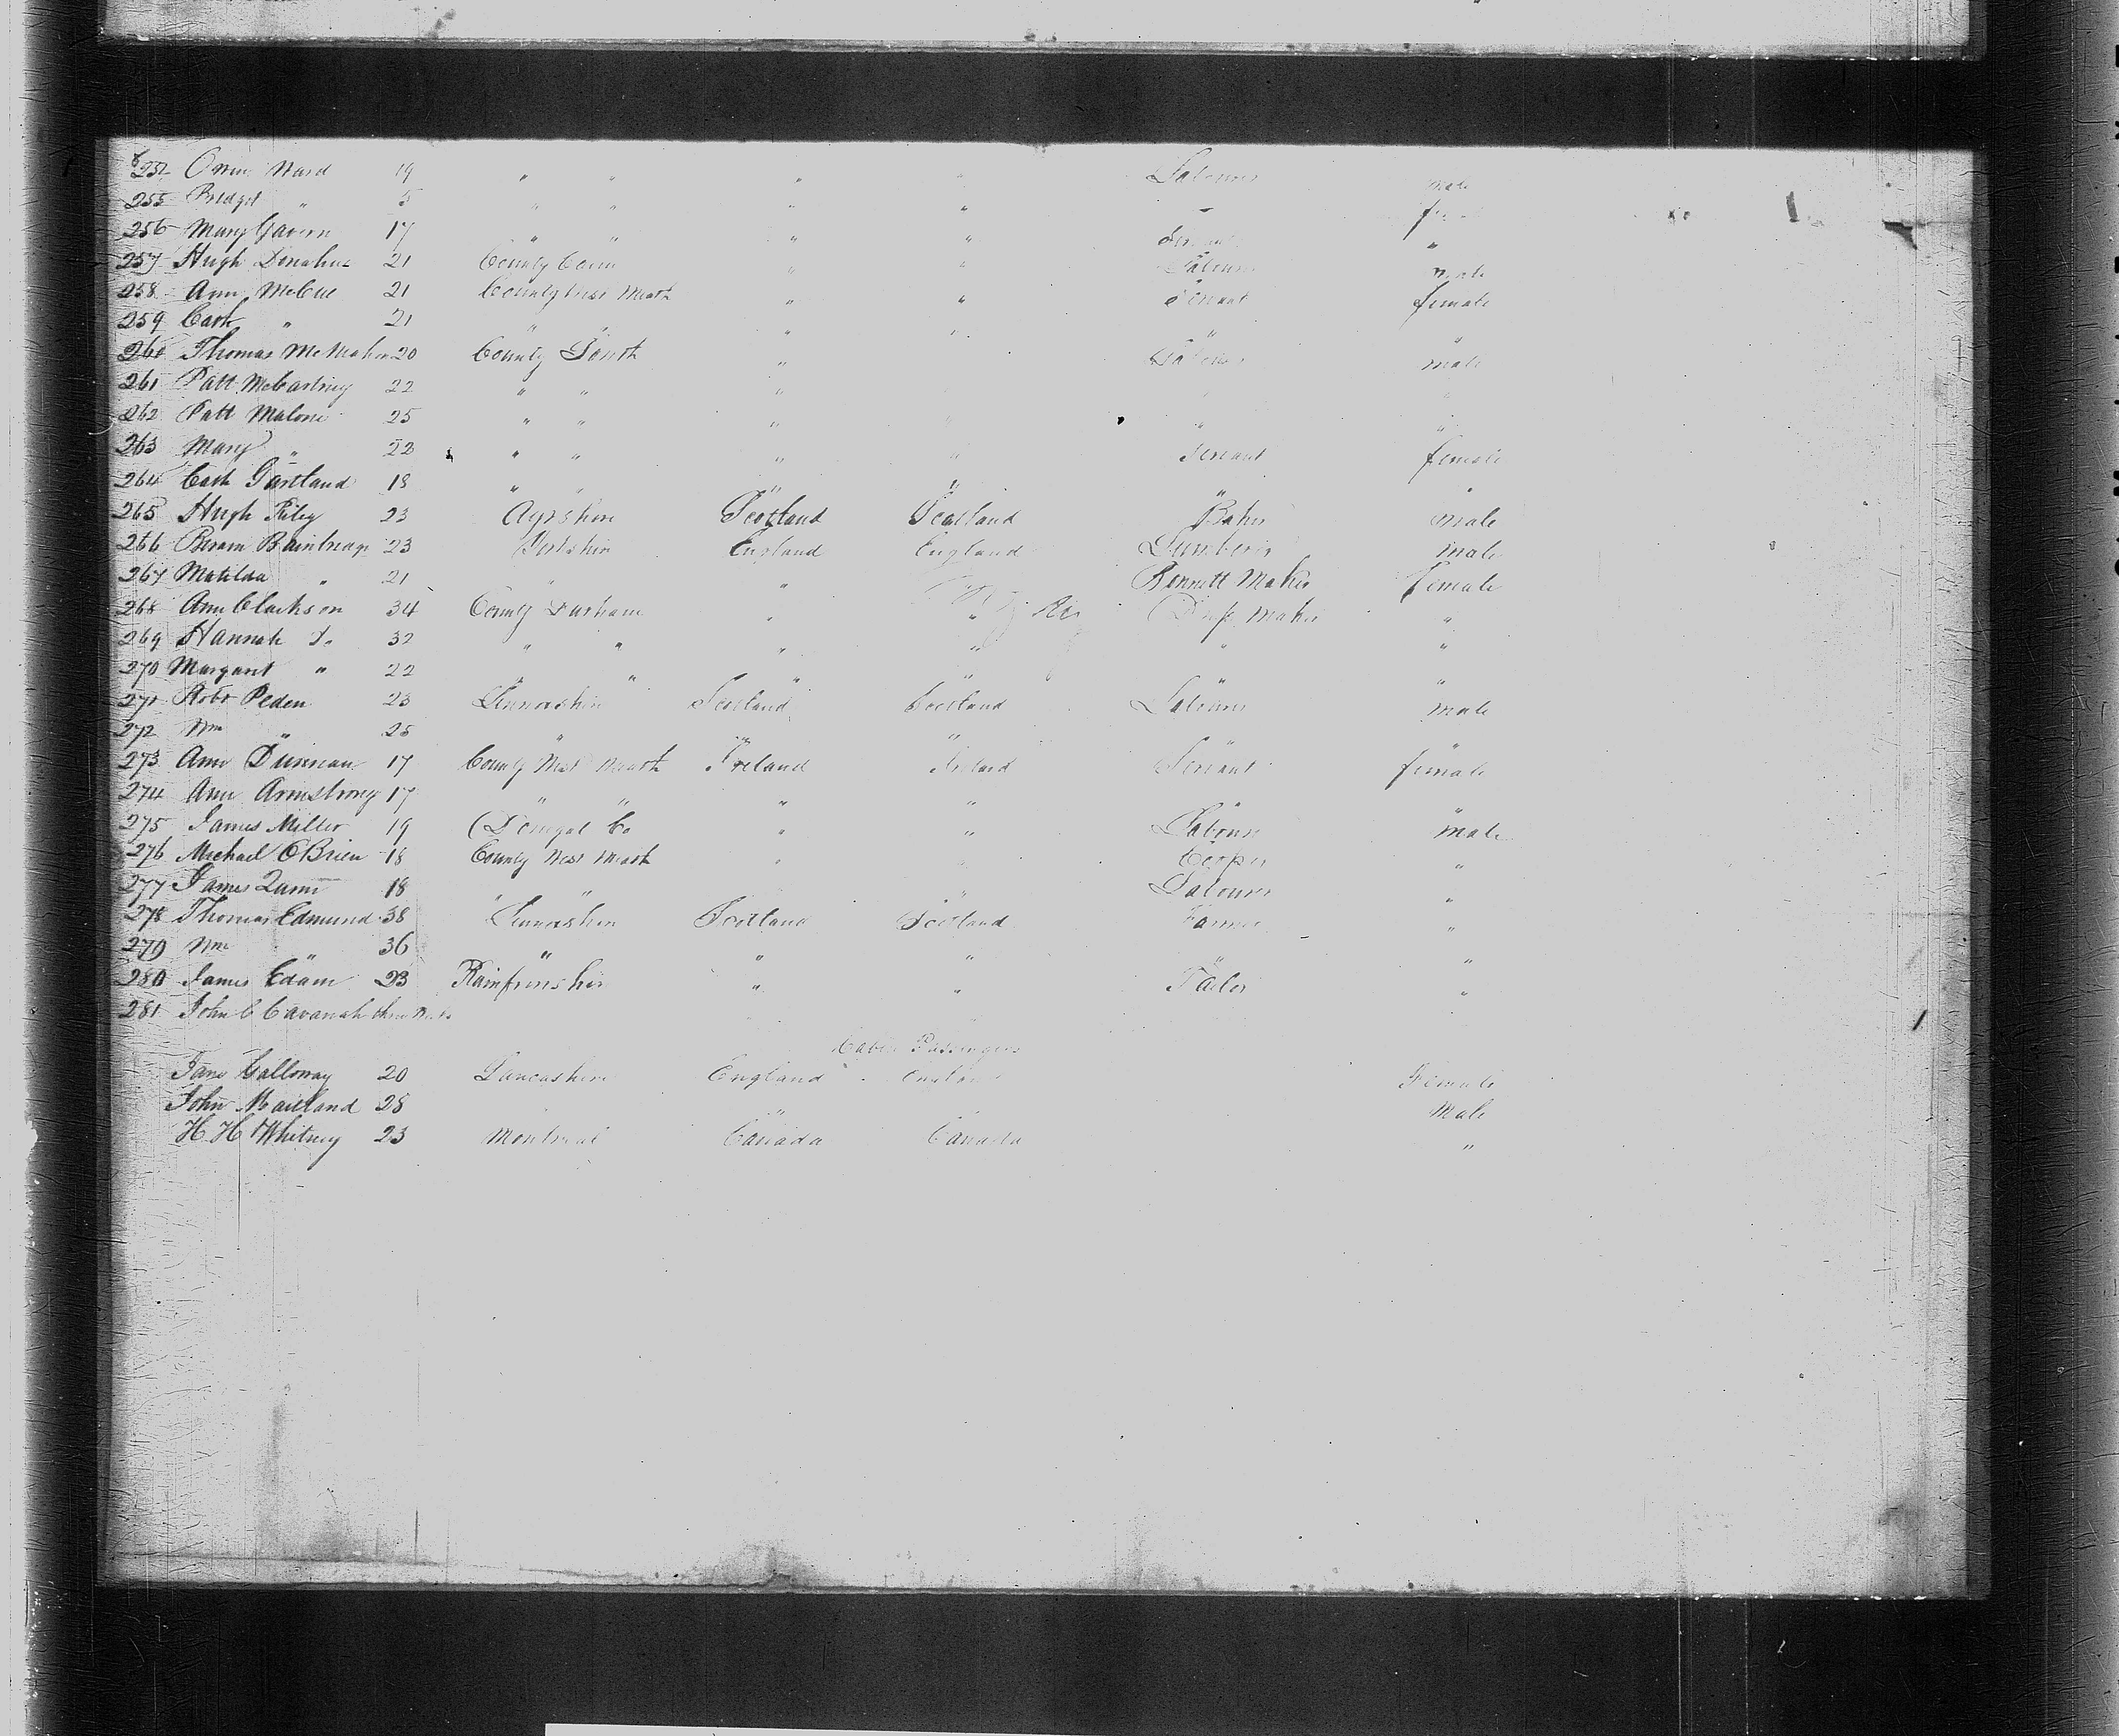 Owen Ward 19 " " " " Labourer male
255 Bridget " 5 " " " " –
256 Mary Gavern 17 " " " " Servant "
257 Hugh Donahue 21 County " " Labourer male
258 Ann McCue 21 County West Meath " " Servant female
259 Cath " 21 " " " " " "
260 Thomas McMahon 20 County Louth " Labourer male
261 Patt McCartney 22 " " "
262 Patt Malone 25 " " " " "
263 Mary " 22 " " " " Servant female
264 Cath Gartland 18 " " " " " "
265 Hugh Riley 23 Ayrshire Scotland Scotland Baker male
266 Bainbridge 23 England England male
267 Matilda " 21 " " Bonnett Maker female
268 Ann Clarkson 34 County Durham " " Dress Maker "
269 Hannah Do 32 " " " " " "
270 Margaret " 22 " " " " " "
271 Robt Peden 23 Scotland Scotland Labourer male
272 Wm " 25 " " " " "
273 Ann 17 County West Meath Ireland Ireland Servant female
274 Ann Armstrong 17 " " " " " "
275 James Miller 19 Donegal Co " " Labourer male
276 Michael O'Brien 18 County West Meath " " "
277 James Quinn 18 " " " " Labourer "
278 Thomas Edmund 38 Scotland Scotland Farmer "
279 Wm " 36 " " " " "
280 James Edam 23 Rainfrewshire " " Tailor "
281 John C Cavanah
Cabin Passengers
Jane Galloway 20 Lancashire England England Female
John Maitland 28 " " Male
H. H. Whitney 23 Montreal Canada Canada "